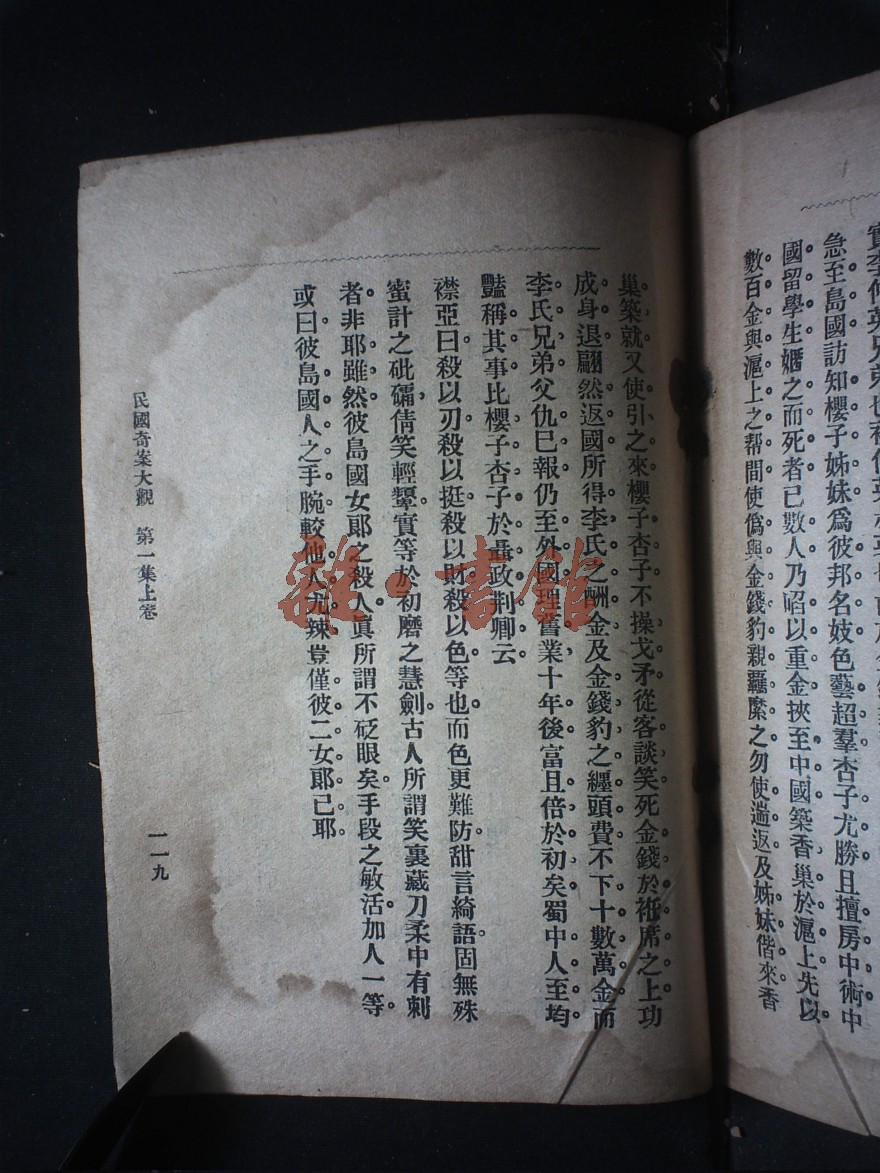 急至島國訪知櫻子姊妹爲彼邦名妓色藝超羣杏子尤勝且擅房中術中
國留學生嬲之而死者已數人乃啗以重金挾至中國築香巢於滬上先以
數百金與滬上之帮間使僞與金錢豹親羈縻之勿使遄返及姊妹偕來香
巢築就又使引之來櫻子杏子不操戈矛從容談笑死金錢於袵席之上功
成身退翩然返國所得李氏之酬金及金錢豹之纒頭費不下十數萬金而
李氏兄弟父仇巳報仍至外國理舊業十年後富且倍於初矣蜀中人至均
豔稱其事比櫻子杏子於聶政荆卿云
襟亞曰殺以刃殺以挺殺以財殺以色等也而色更難防甜言綺語固無殊
蜜計之砒礵倩笑輕顰實等於初磨之慧劍古人所謂笑裏藏刀柔中有刺
者非耶雖然彼島國女郞之殺人眞所謂不砭眼矣手段之敏活加人一等
或曰彼島國人之手腕較他人尤辣豈僅彼二女郞已耶
民國奇案大觀　第一集上卷
一一九
雜·書館